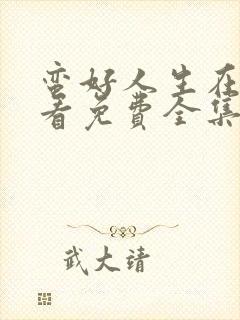 蛮好人生在
看免费全集
武大靖